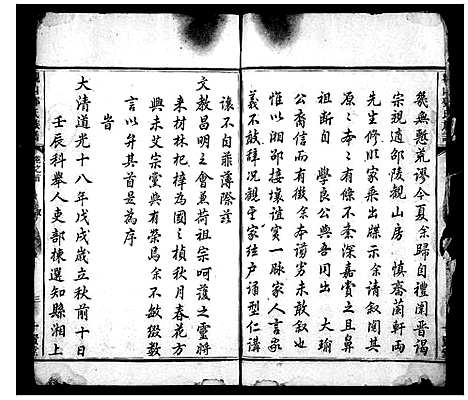 幾無憗荒謬今夏余歸自禮闈晉謁
宗祝適邵陵觀山房 慎齋蘭軒兩
先生修明家乘既竣出示余請叙閱其
原原本本之有條不紊深嘉賞之且鼻
祖斷自 學良公與吾同出 大瑜
公耆信而有徵余本謭劣未敢叙也
惟以湘鄒接壤誼實一脉家人言家
義不敢辭况觀乎家絃户誦型仁講
讓不自菲薄際茲
文教昌明之會兼荷祖宗呵護之靈將
來材林杞梓為國之楨秋月春花方
興未艾宗黨與有榮焉余不敏綴數
言以弁其首是為序
旹
大清道光十八年戊戌歲立秋前十日
壬辰科舉人吏部揀選知縣湘上